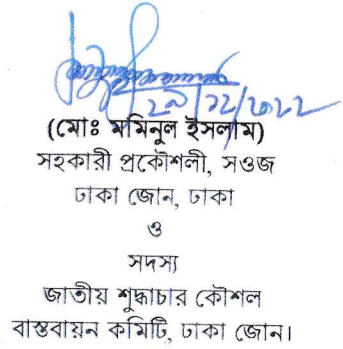 ২৯/১২/২০২২
(মোঃ মমিনুল ইসলাম)
সহকারী প্রকৌশলী, সওজ
ঢাকা জোন, ঢাকা
ও
সদস্য
জাতীয় শুদ্ধাচার কৌশল
বাস্তবায়ন কমিটি, ঢাকা জোন।